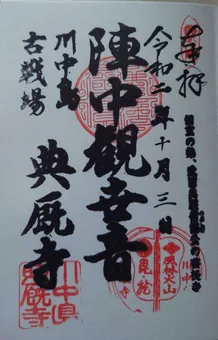 奉拝
令和二年十月三日
陣中観世音
川中島
古戦場
典厩寺
風林火山
毘 龍
川中島
典厩寺